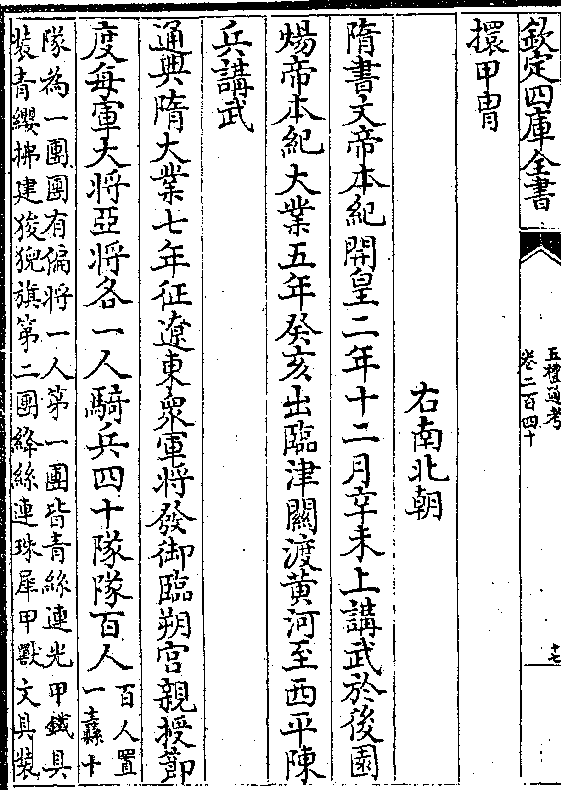 欽定四庫全書
五禮通考
卷二百四十
十七
擐甲胄
右南北朝
隋書文帝本紀開皇二年十二月辛未上講武於後園
煬帝本紀大業五年癸亥出臨津關渡黄河至西平陳
兵講武
通典隋大業七年征遼東衆軍將發御臨朔宫親授節
度每軍大将亞將各一人騎兵四十隊隊百人百人置
一纛十
隊為一團團有偏将一人第一團皆青絲連光甲鐵具
裝青纓拂建狻猊旗第二團絳絲連珠犀甲獸文具裝